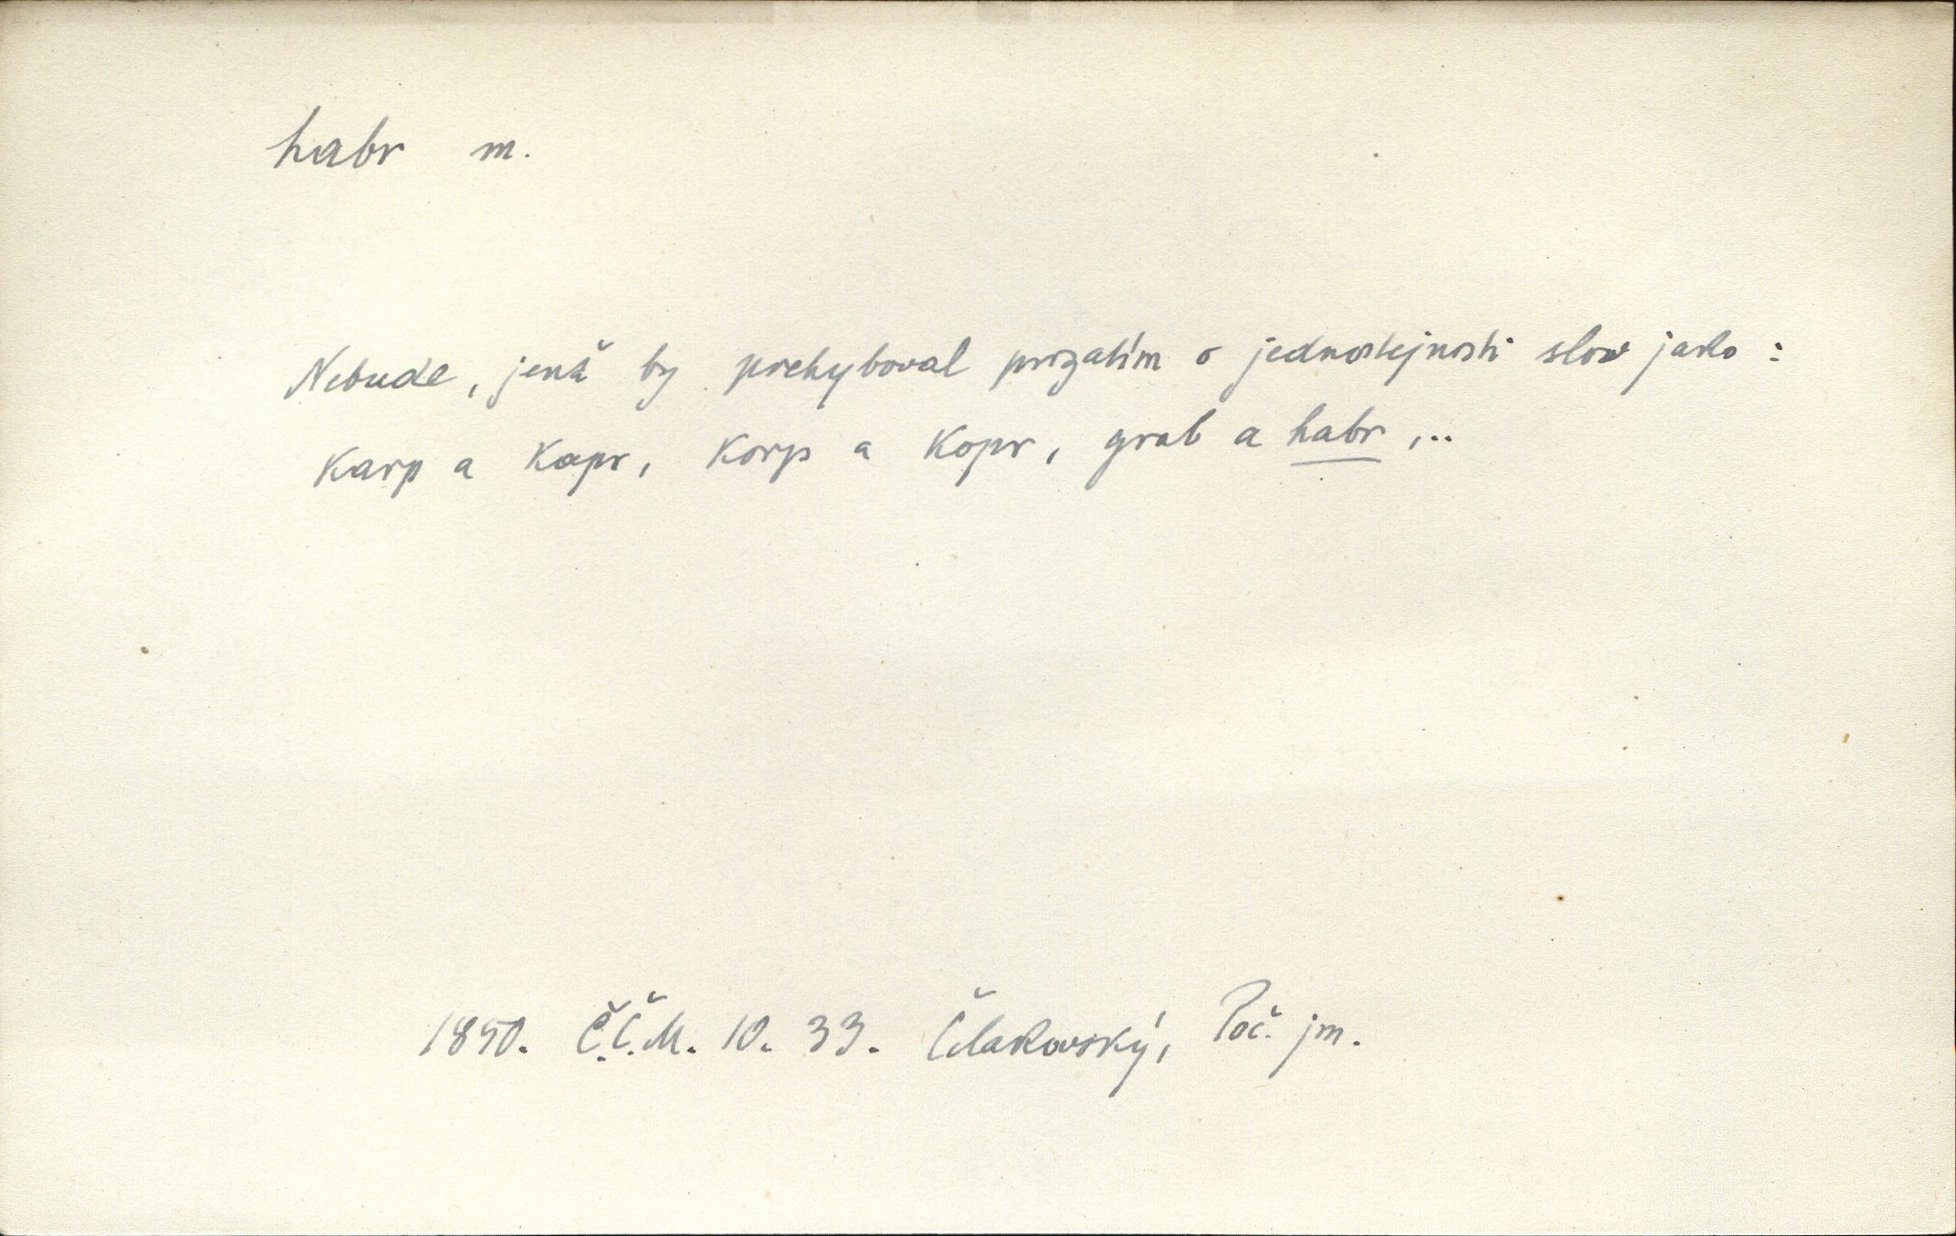 habr m.
Nebude, jenž by pochyboval prozatím o jednostejnosti slow jako:
Karp a Kapr, Korp a Kopr, grab a habr,..
1850. Č.Č.M. 10. 33. Čelakovský, Poč. jm.